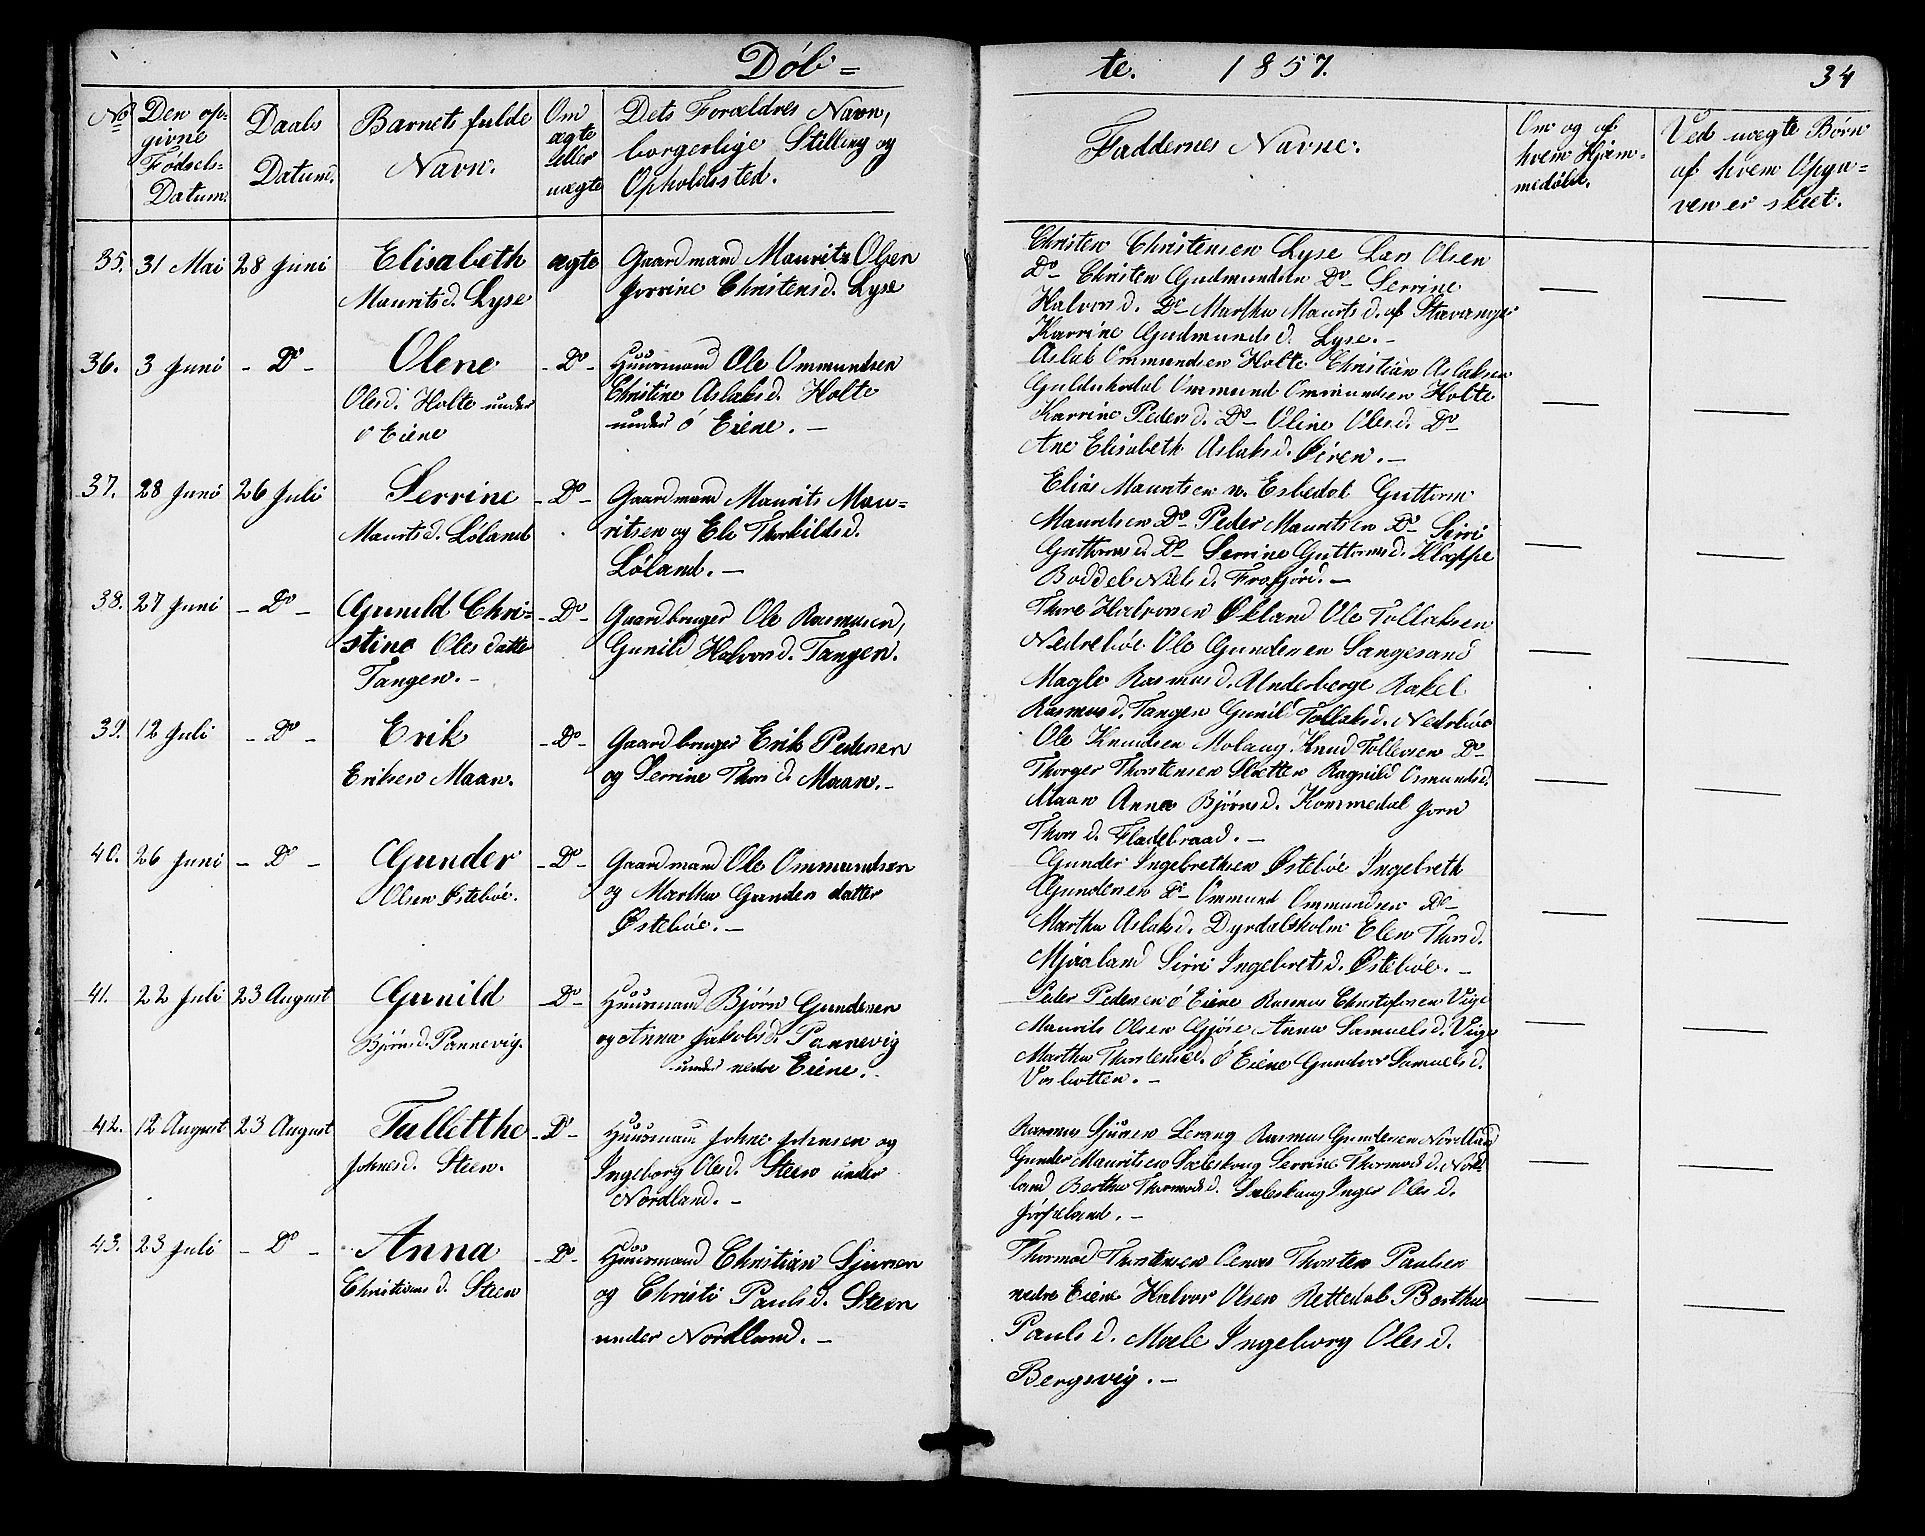 Döb=
te. 1857.
34
No
Den op=
givne
Födsels=
Datum.
Daabs
Datum.
Barnets fulde
Navn.
Om
ægte
eller
uægte
Dets Forældres Navn,
borgerlige Stilling og
Opholdssted.
Faddernes Navne.
Om og af
hvem Hjem=
medöbt.
Ved uægte Börn
af hvem Opgi=
ven er skeet.
35. 31 Mai 28 Juni Elisabeth ægte Gaardmand Mauritz Olsen
Mauritsd. Lyse Jorrine Christensd. Lyse
Christen Christensen Lyse Lars Olsen
Do- Christen Gudmundsen Do- Serrine
Halvorsd. Do- Martha Mauritsd. af Stavanger
Karrine Gudmundsd. Lyse.-
36. 3 Juni - Do - Olene - Do - Huusmand Ole Ommundsen
Olesd. Holte under Christine Aslaksd. Holte
ö Eiene under ö Eiene. -
Aslak Ommundsen Holte Christian Aslaksen
Ommund Ommundsen Holte
Karrine Pedersd. Do- Oline Olesd. Do-
Ane Elisabeth Aslaksd. Öiren. -
37. 28 Juni 26 Juli Serrine - Do - Gaardmand Maurits Mau=
Mauritsd. Löland ritsen og Eli Thorkildsd.
Löland. -
Elias Mauritsen n. Eskedal Guttorm
Mauritsen Do- Peder Mauritsen Do- Siri
Guttormsd. Do- Serrine Guttormsd. Kleppe
Boddel Nielsd. Frafjord. -
38. 27 Juni - Do - Gunild Chri= - Do - Gaardbruger Ole Rasmusen,
stine Olesdatter Gunild Halvorsd. Tangen.
Tangen. -
Thore Halvorsen Økland Ole Tollaksen
Nedreböe Ole Gundersen Sangesand
Magle Rasmusd. Underberge Rakel
Rasmusd. Tangen Gunild Tollaksd. Nedreböe
39. 12 Juli - Do - Erik - Do - Gaardbruger Erik Pedersen
Eriksen Maan. og Serrine Thorsd. Maan. -
Ole Knudsen Molaug Knud Tollevsen Do-
Thorger Thorstensen Sletten Ragnild Osmundsd.
Maan Anna Björnsd. Kommedal Jorn
Thorsd. Fladebraad. -
40. 26 Juni - Do - Gunder - Do - Gaardmand Ole Ommundsen
Olsen Østeböe. og Martha Gundersdatter
Østeböe. -
Gunder Ingebrethsen Østeböe Ingebreth
Gundersen Do- Ommund Ommundsen Do-
Martha Aslaksd. Dyrdalsholm Elen Thorsd.
Mjaaland Sirri Ingebretsd. Østeböe. -
41. 22 Juli 23 August Gunild - Do - Huusmand Björn Gundersen
Björnsd. Pannevig. og Anna Jakobsd. Pannevig
under nedre Eiene. -
Peder Pedersen ö Eiene Rasmus Christofersen Vige
Maurits Olsen Gjöse Anna Samuelsd. Vige
Martha Thorstensd. ö Eiene Gundvor Samuelsd.
Vosbotten. -
42. 12 August 23 August Talletthe - Do - Huusmand Johne Johnsen og
Johnsd. Steen. Ingeborg Olesd. Steen under
Nordland. -
Rasmus Sjursen Levang Rasmus Gundersen Nordland
Gunder Mauritsen Sæleskoug Serrine Thormodsd. Nord
land Bertha Thormodsd. Sæleskoug Inger Olesd.
Jörpeland. -
43. 23 Juli - Do - Anna - Do - Huusmand Christian Sjursen
Christiansd. Steen og Christi Paulsd. Steen
under Nordland. -
Thormod Thorstensen Oenæs Thorsten Paulsen
nedre Eiene Halvor Olsen Rettedal Bertha
Paulsd. Mæle Ingeborg Olesd.
Bergevig. -